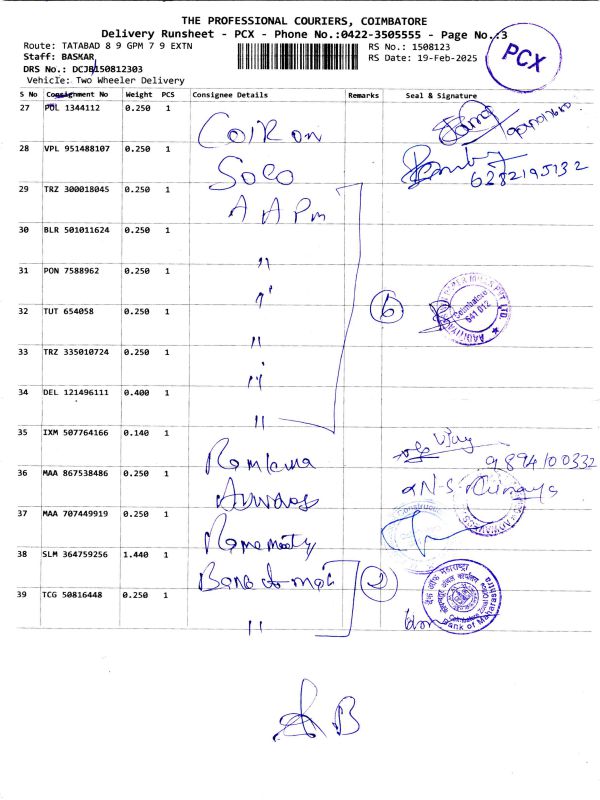 THE PROFESSIONAL COURIERS, COIMBATORE
Delivery Runsheet - PCX - Phone No.:0422-3505555 - Page No.:3
Route: TATABAD 8 9 GPM 7 9 EXTN
RS No.: 1508123
Staff: BASKAR
RS Date: 19-Feb-2025
DRS No.: DCJB150812303
Vehicle: Two Wheeler Delivery
PCX
S No Consignment No Weight PCS Consignee Details Remarks Seal & Signature
27 POL 1344112 0.250 1
28 VPL 951488107 0.250 1 Soco
6282195132
29 TRZ 300018045 0.250 1 A A Pm
30 BLR 501011624 0.250 1 "
31 PON 7588962 0.250 1 "
6
Coimbatore
641 012
32 TUT 654058 0.250 1 "
33 TRZ 335010724 0.250 1 "
34 DEL 121496111 0.400 1 "
35 IXM 507764166 0.140 1
Vijay
9894100332
36 MAA 867538486 0.250 1
37 MAA 707449919 0.250 1
38 SLM 364759256 1.440 1 Bank of mah
2
Bank of Maharashtra
39 TCG 50816448 0.250 1 "
B